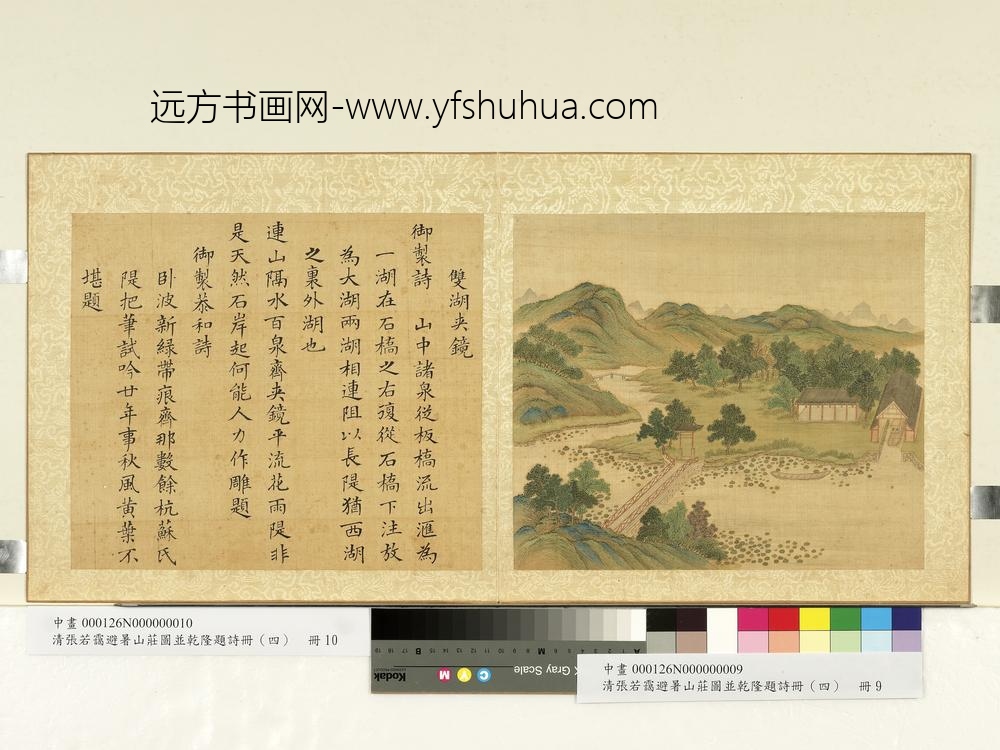 远方书画网-www.yfshuhua.com
雙湖夾鏡
御製詩 山中諸泉從板橋流出滙為
一湖在石橋之右復從石橋下注放
為大湖兩湖相連阻以長隄猶西湖
之裏外湖也
連山隔水百泉齊夾鏡平流花雨隄非
是天然石岸起何能人力作雕題
御製恭和詩
臥波新緑帶痕齊那數餘杭蘇氏
隄把筆試吟廿年事秋風黃葉不
堪題
中畫 000126N000000010
清張若靄避暑山莊圖並乾隆題詩冊（四） 冊10
Kodak
C Y M
Gray Scale
A 1 2 3 4 5 6 M 8 9 10 11 12 13 14 15 B 17 18 19
中畫 000126N000000009
清張若靄避暑山莊圖並乾隆題詩冊（四） 冊9